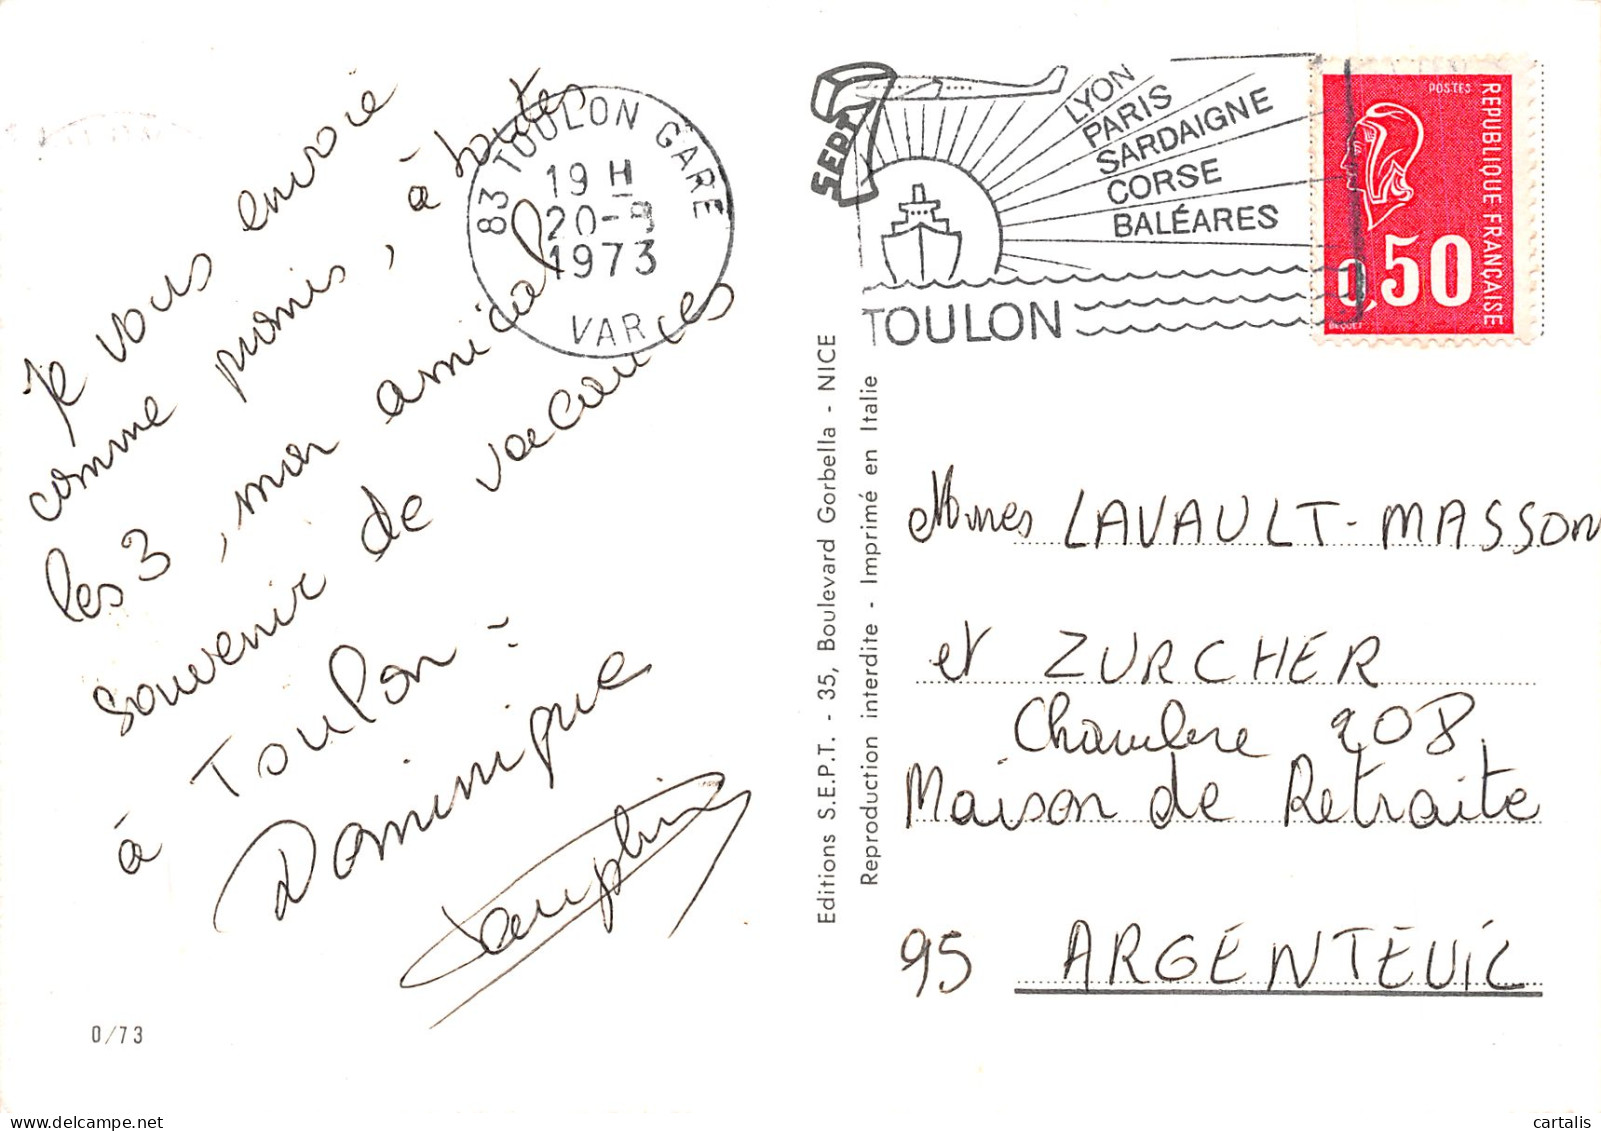 Je vous envoie
comme promis, à toutes
les 3, mon amical
souvenir de vacances
à Toulon =
Dominique
Dauphin
0/73
83 TOULON GARE
19 H
20-9
1973
VAR
SEPT
LYON
PARIS
SARDAIGNE
CORSE
BALÉARES
TOULON
POSTES
REPUBLIQUE FRANÇAISE
0,50
BEQUET
Editions S.E.P.T. - 35, Boulevard Gorbella - NICE
Reproduction interdite - Imprimé en Italie
Mmes LAVAULT-MASSON
et ZURCHER
Chambre 208
Maison de Retraite
95 ARGENTEUIL
cartalis delcampe.net